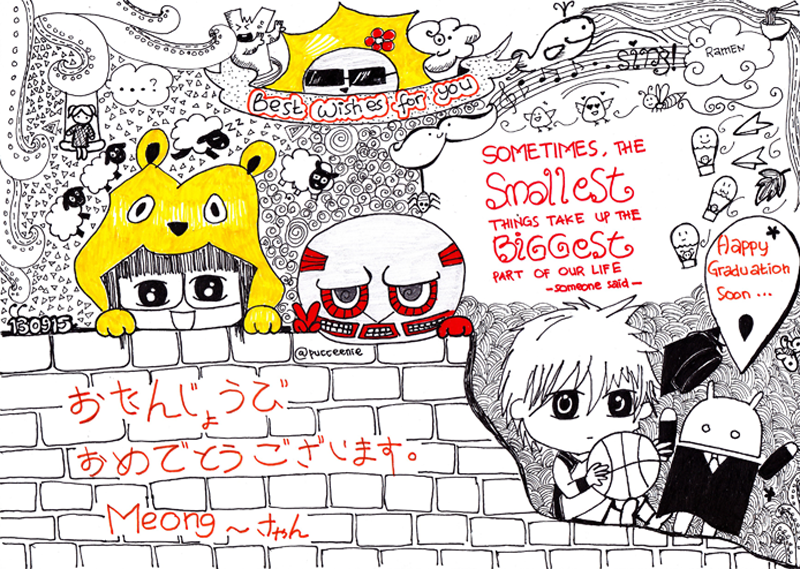 ...?
Best wishes for you
RAMEN
ZZ
SOMETIMES, THE
Smallest
THINGS TAKE UP THE
BIGGEST
PART OF OUR LIFE
- someone said -
Happy
Graduation
Soon ...
130915
@pucceenie
おたんじょうび
おめでとうございます。
Meong～ちゃん